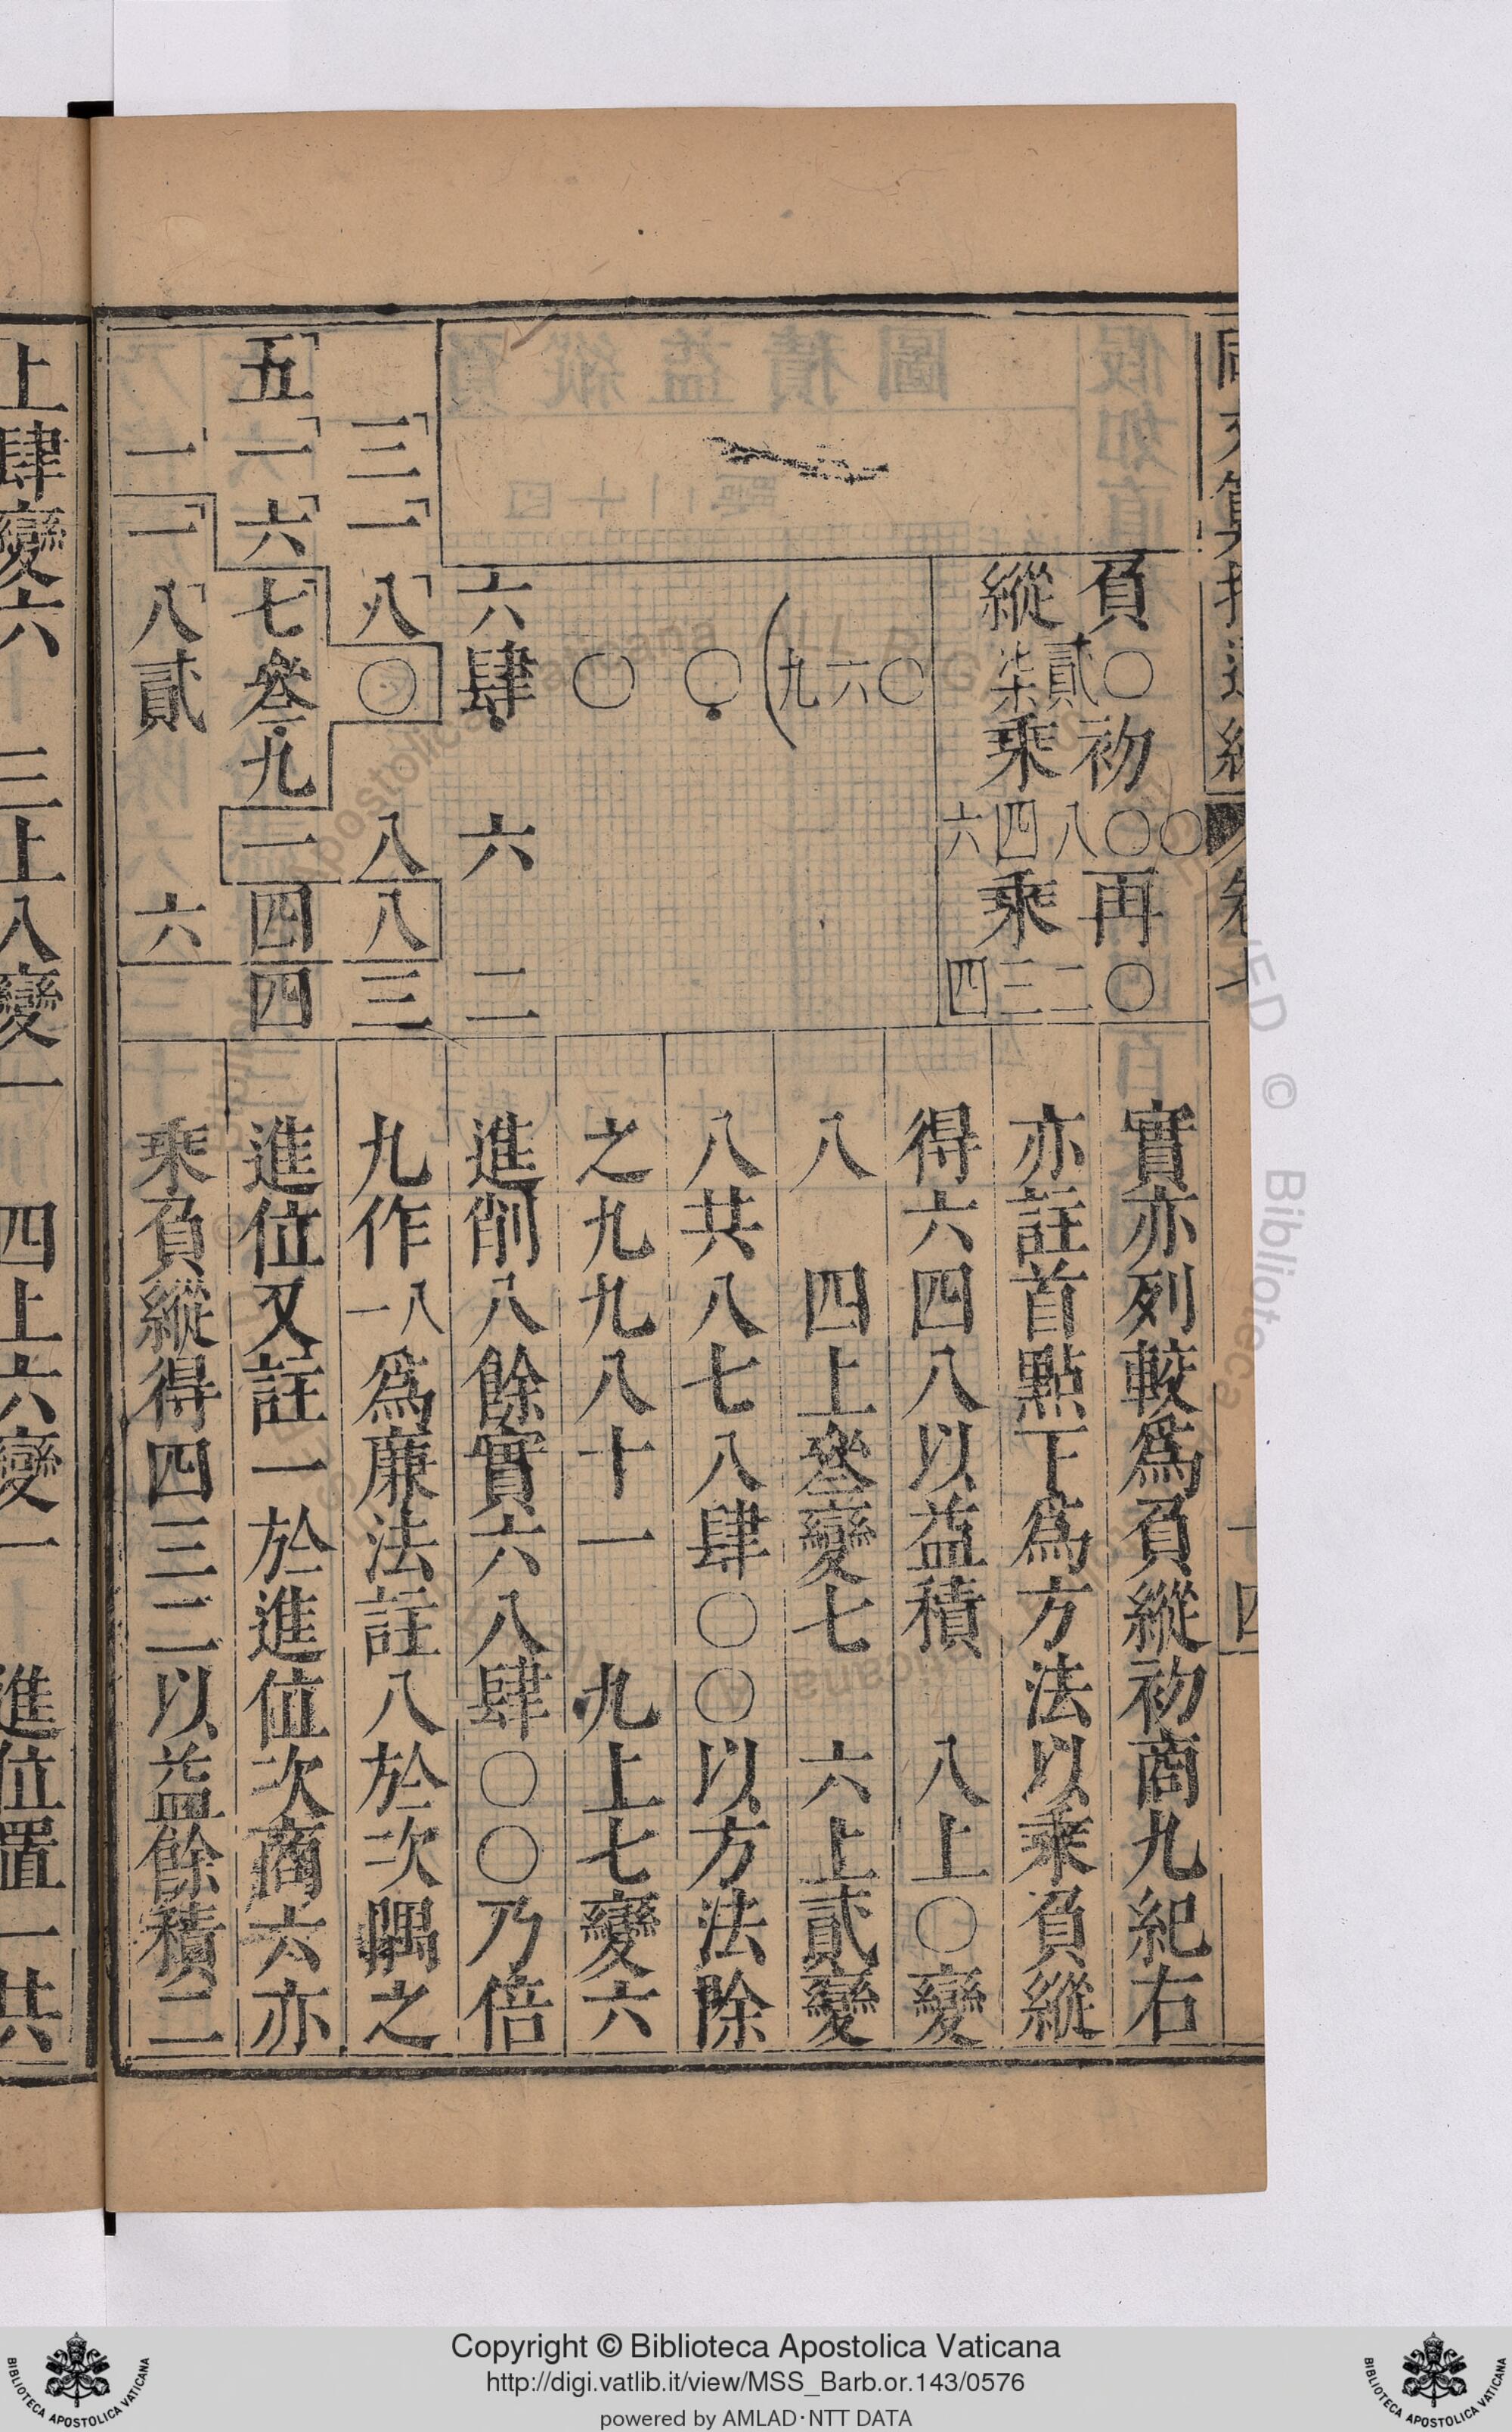 實亦列較爲負縱初商九紀右
亦註首點下爲方法以乘負縱
得六四八以益積 八上〇變
八 四上叄變七 六上貳變
八共八七八肆〇〇以方法除
之九九八十一 九上七變六
進削八餘實六八肆〇〇乃倍
九作一八爲廉法註八於次隅之
進位又註一於進位次商六亦
乘負縱得四三二以益餘積二
負縱
〇貳柒
初乘
〇〇八四六
再乘
〇二三四
〇六九
〇
〇
六肆 六 二
三一八〇 八八三
五一六七叄九 二四四
一一八貳 六
上肆變六 三上八變一 四上六變一 進位置一共
Copyright © Biblioteca Apostolica Vaticana
http://digi.vatlib.it/view/MSS_Barb.or.143/0576
powered by AMLAD·NTT DATA
BIBLIOTECA APOSTOLICA VATICANA
BIBLIOTECA APOSTOLICA VATICANA